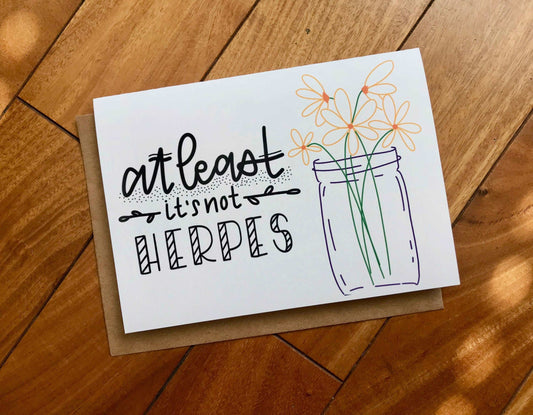 at least
it's not
HERPES